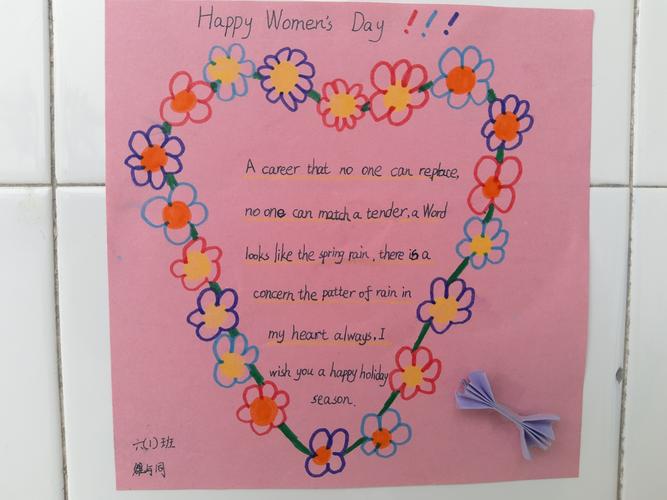 Happy Women's Day !!!
A career that no one can replace,
no one can match a tender, a Word
looks like the spring rain, there is a
concern the patter of rain in
my heart always, I
wish you a happy holiday
season.
六(1)班